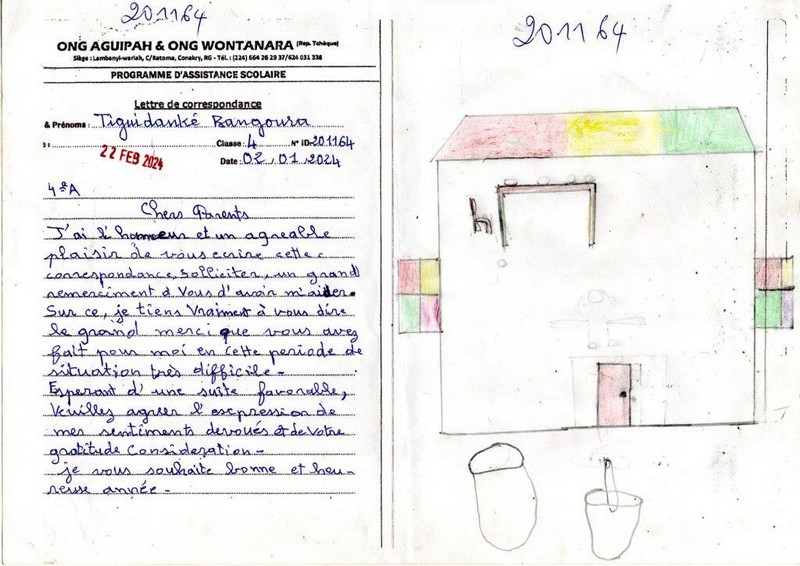 201164
ONG AGUIPAH & ONG WONTANARA (Rep. Tchèque)
Siège : Lambanyi-wariah, C/Ratoma, Conakry, RG - Tél. : (224) 664 26 29 37/624 031 338
PROGRAMME D'ASSISTANCE SCOLAIRE
Lettre de correspondance
& Prénoms : Tiguidanké Bangoura
Classe : 4 N° ID: 201164
22 FEB 2024
Date : 02, 01, 2024
4èA
Chers Parents
J'ai l'honneur et un agreable
plaisir de vous ecrire cette
correspondance solliciter, un grand
remerciment à Vous d'avoir m'aider.
Sur ce, je tiens Vraiment à vous dire
le grand merci que vous avez
fait pour moi en cette periode de
situation très difficile -
Esperant d'une suite favorable,
Veuillez agreer l'expression de
mes sentiments devoués et de votre
gratitude Consideration -
je vous souhaite bonne et heu-
reuse année -
201164